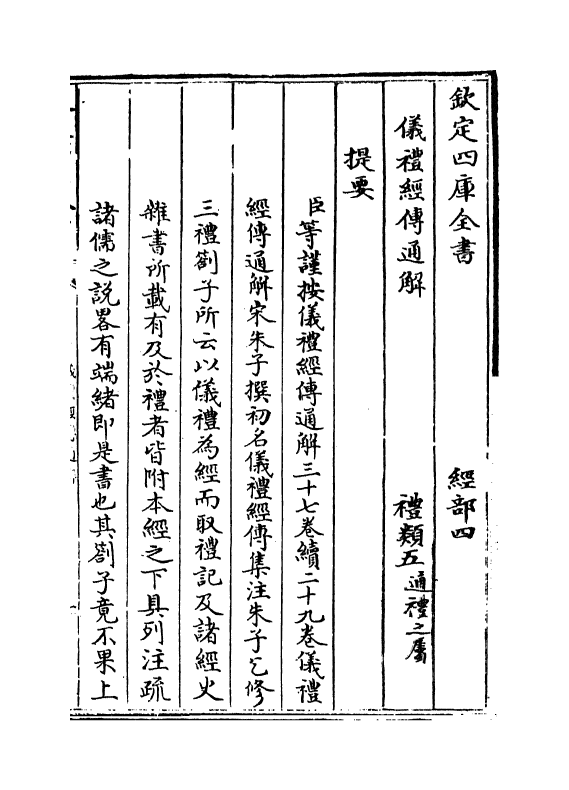 欽定四庫全書　經部四
儀禮經傳通解　禮類五通禮之屬
提要
臣等謹按儀禮經傳通解三十七卷續二十九卷儀禮
經傳通解宋朱子撰初名儀禮經傳集注朱子乞修
三禮劄子所云以儀禮為經而取禮記及諸經史
雜書所載有及於禮者皆附本經之下具列注疏
諸儒之說畧有端緒即是書也其劄子竟不果上